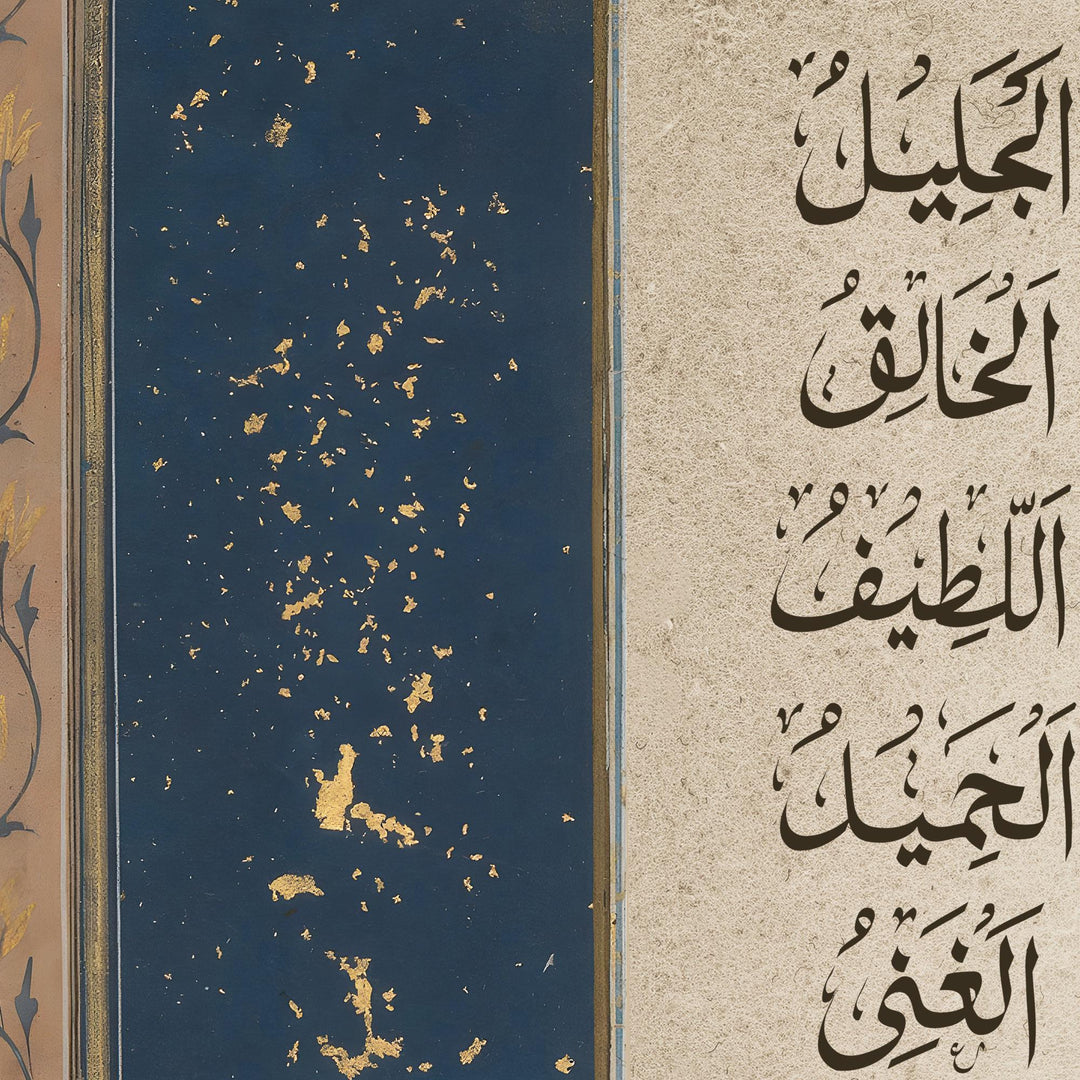 الجَلِيلُ
اَلْخَالِقُ
اَللَّطِيفُ
اَلْخَمِيلُ
اَلْغَنِيُ